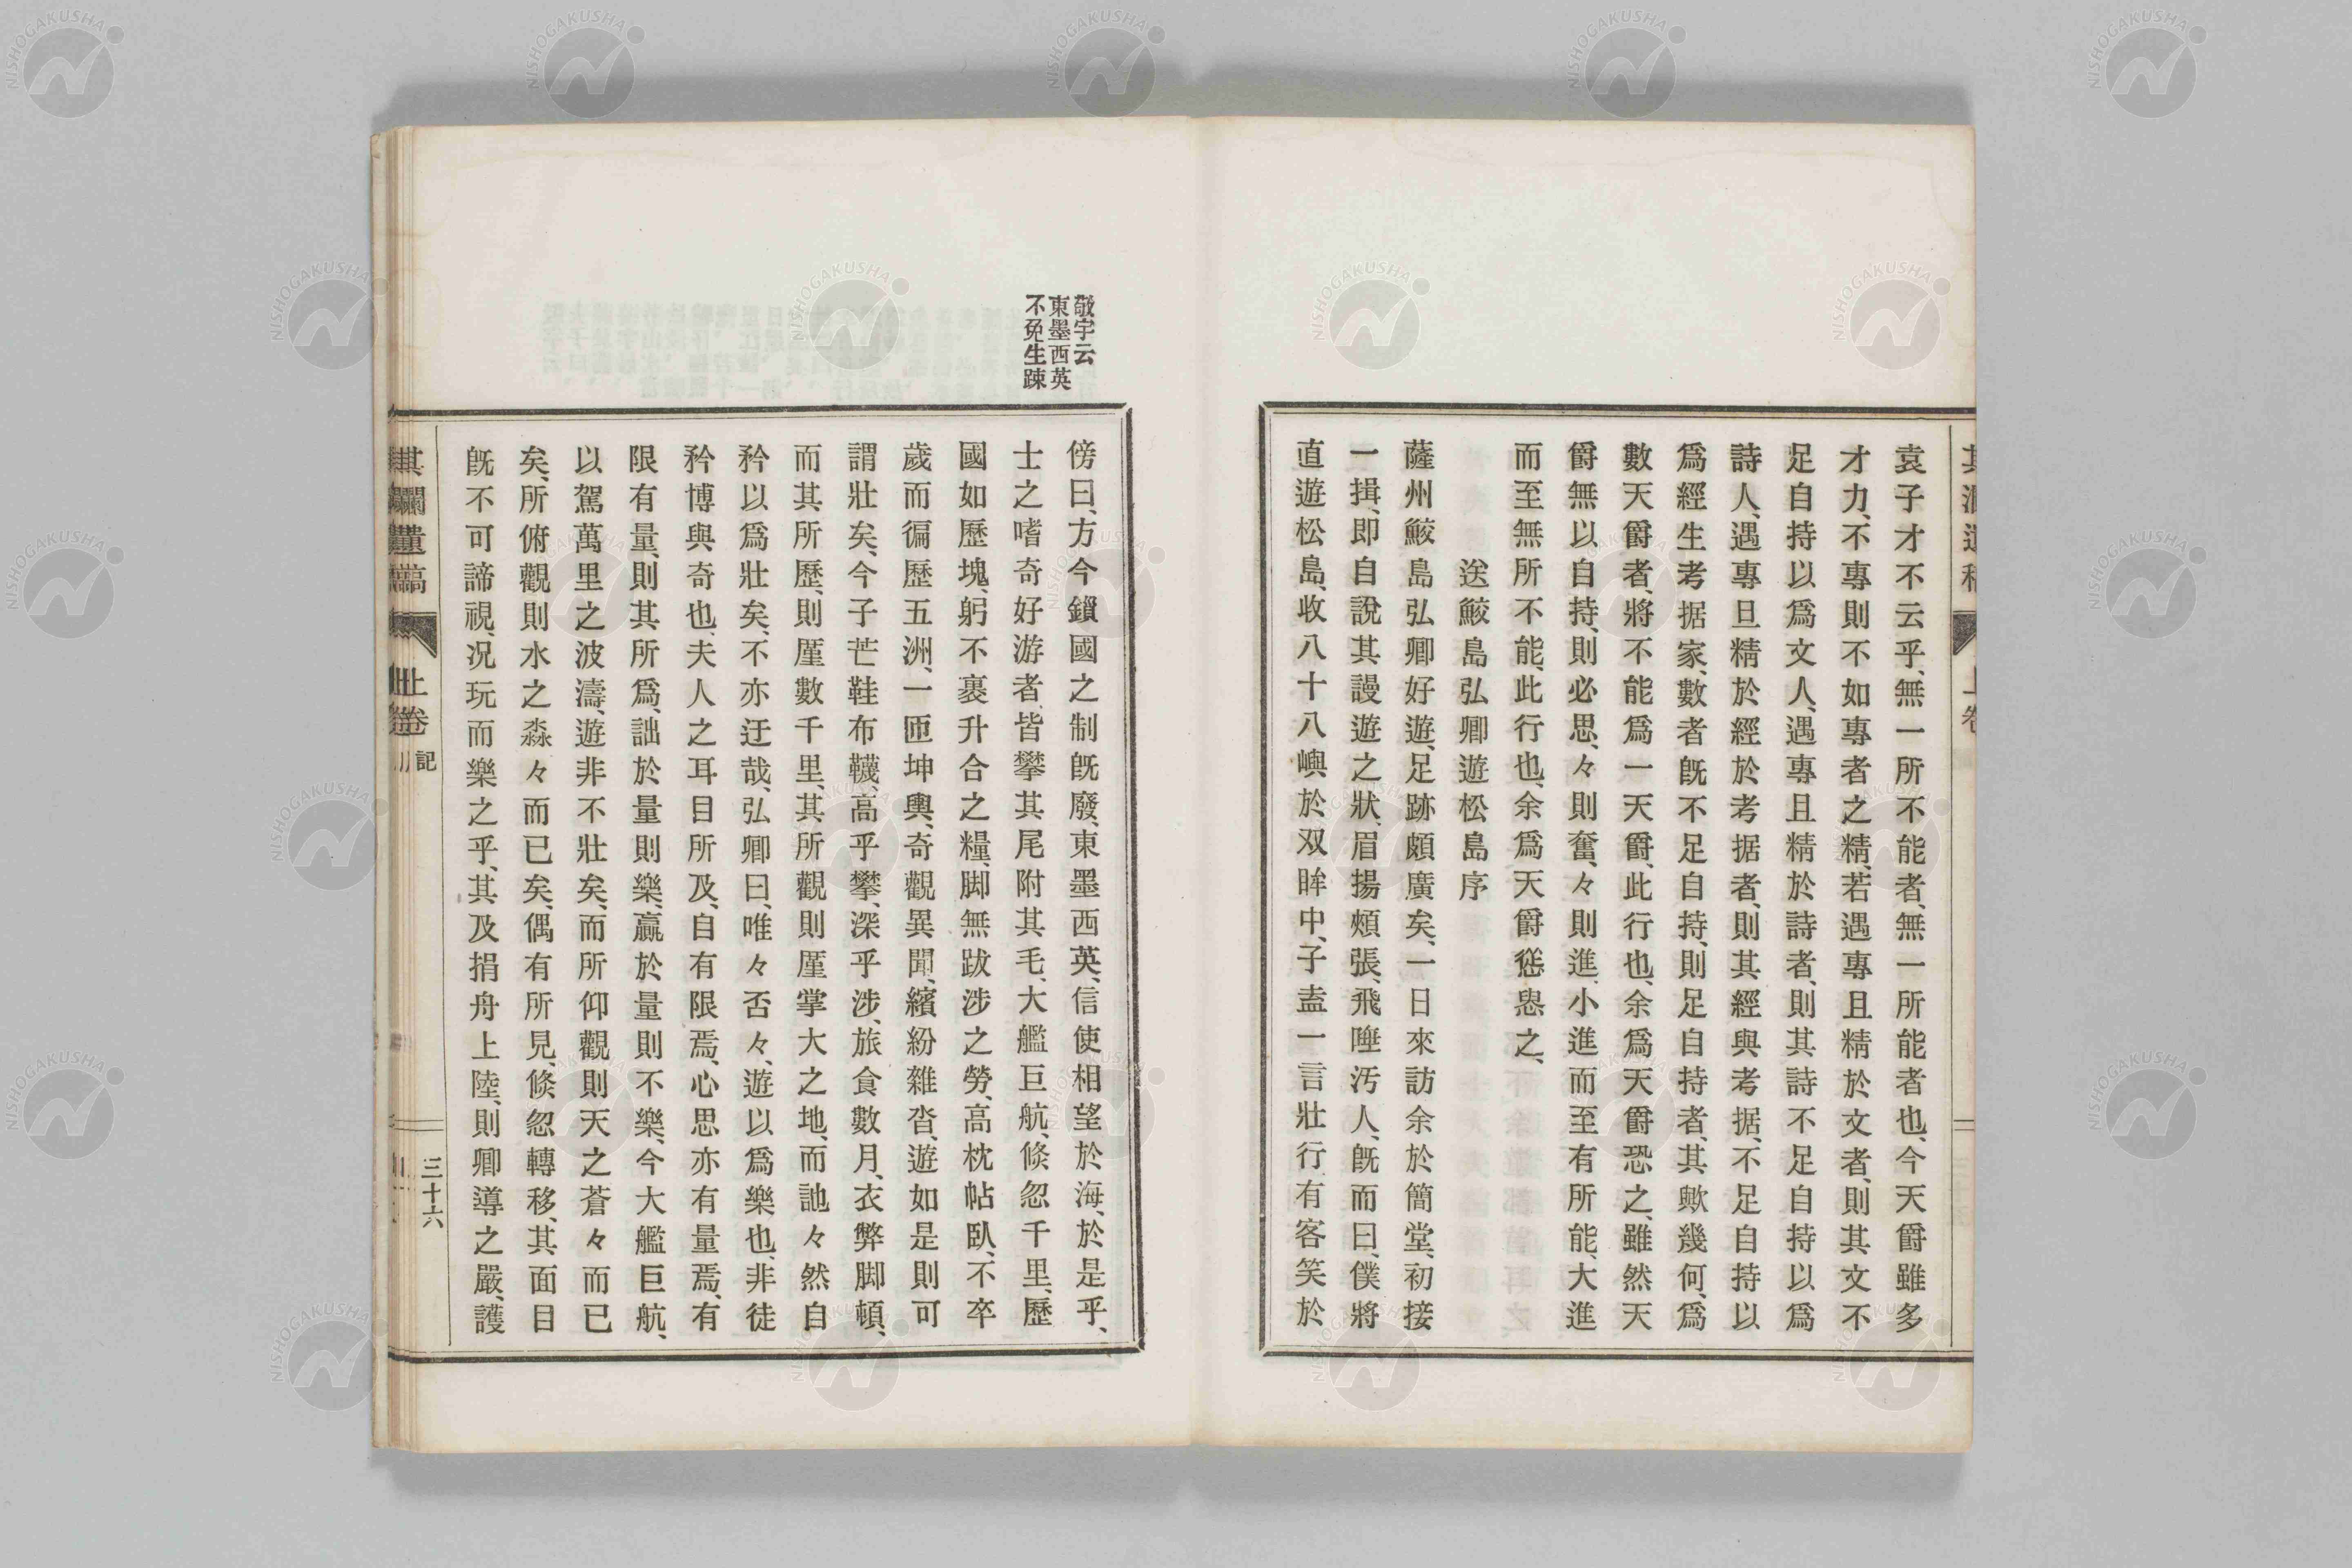 袁子才不云乎、無一所不能者、無一所能者也、今天爵雖多
才力、不專則不如專者之精、若遇專且精於文者、則其文不
足自持以爲文人、遇專且精於詩者、則其詩不足自持以爲
詩人、遇專旦精於經於考据者、則其經與考据、不足自持以
爲經生考据家、數者既不足自持、則足自持者、其歟幾何、爲
數天爵者、將不能爲一天爵、此行也、余爲天爵恐之、雖然天
爵無以自持、則必思、々則奮、々則進、小進而至有所能、大進
而至無所不能、此行也、余爲天爵慫慂之、
送鮫島弘卿遊松島序
薩州鮫島弘卿好遊、足跡頗廣矣、一日來訪余於簡堂、初接
一揖、即自說其謾遊之狀、眉揚頰張、飛唾汚人、既而曰、僕將
直遊松島、收八十八嶼於双眸中、子盍一言壯行、有客笑於
敬宇云
東墨西英
不免生踈
傍曰、方今鎖國之制既廢、東墨西英、信使相望於海、於是乎、
士之嗜奇好游者、皆攀其尾附其毛、大艦巨航、倏忽千里、歷
國如歷塊、躬不裹升合之糧、脚無跋涉之勞、高枕帖臥、不卒
歲而徧歷五洲、一匝坤輿、奇觀異聞、繽紛雜沓、遊如是則可
謂壯矣、今子芒鞋布韈、高乎攀、深乎涉、旅食數月、衣弊脚頓、
而其所歷、則厪數千里、其所觀則厪掌大之地、而訑々然自
矜以爲壯矣、不亦迂哉、弘卿曰、唯々否々、遊以爲樂也、非徒
矜博與奇也、夫人之耳目所及、自有限焉、心思亦有量焉、有
限有量、則其所爲、詘於量則樂、贏於量則不樂、今大艦巨航、
以駕萬里之波濤、遊非不壯矣、而所仰觀則天之蒼々而已
矣、所俯觀則水之淼々而已矣、偶有所見、倏忽轉移、其面目
既不可諦視、况玩而樂之乎、其及捐舟上陸、則卿導之嚴、護
上卷
記
三十六